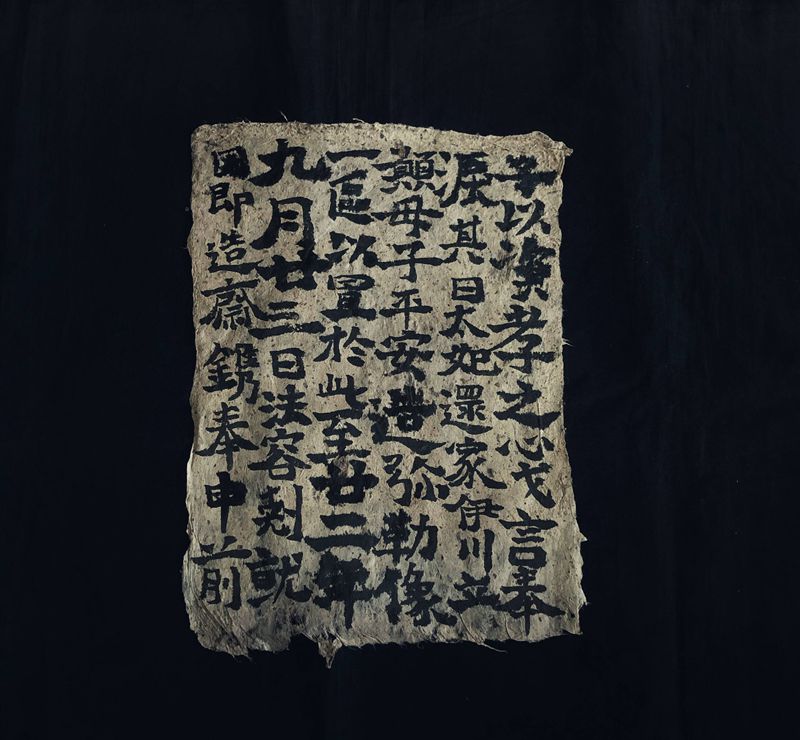 子以資孝之心戈言奉
戾其日太妃還家伊川立
願母子平安造弥勒像
一區以置於此至廿二年
九月廿三日法容刻就
因即造齋鐫奉申前